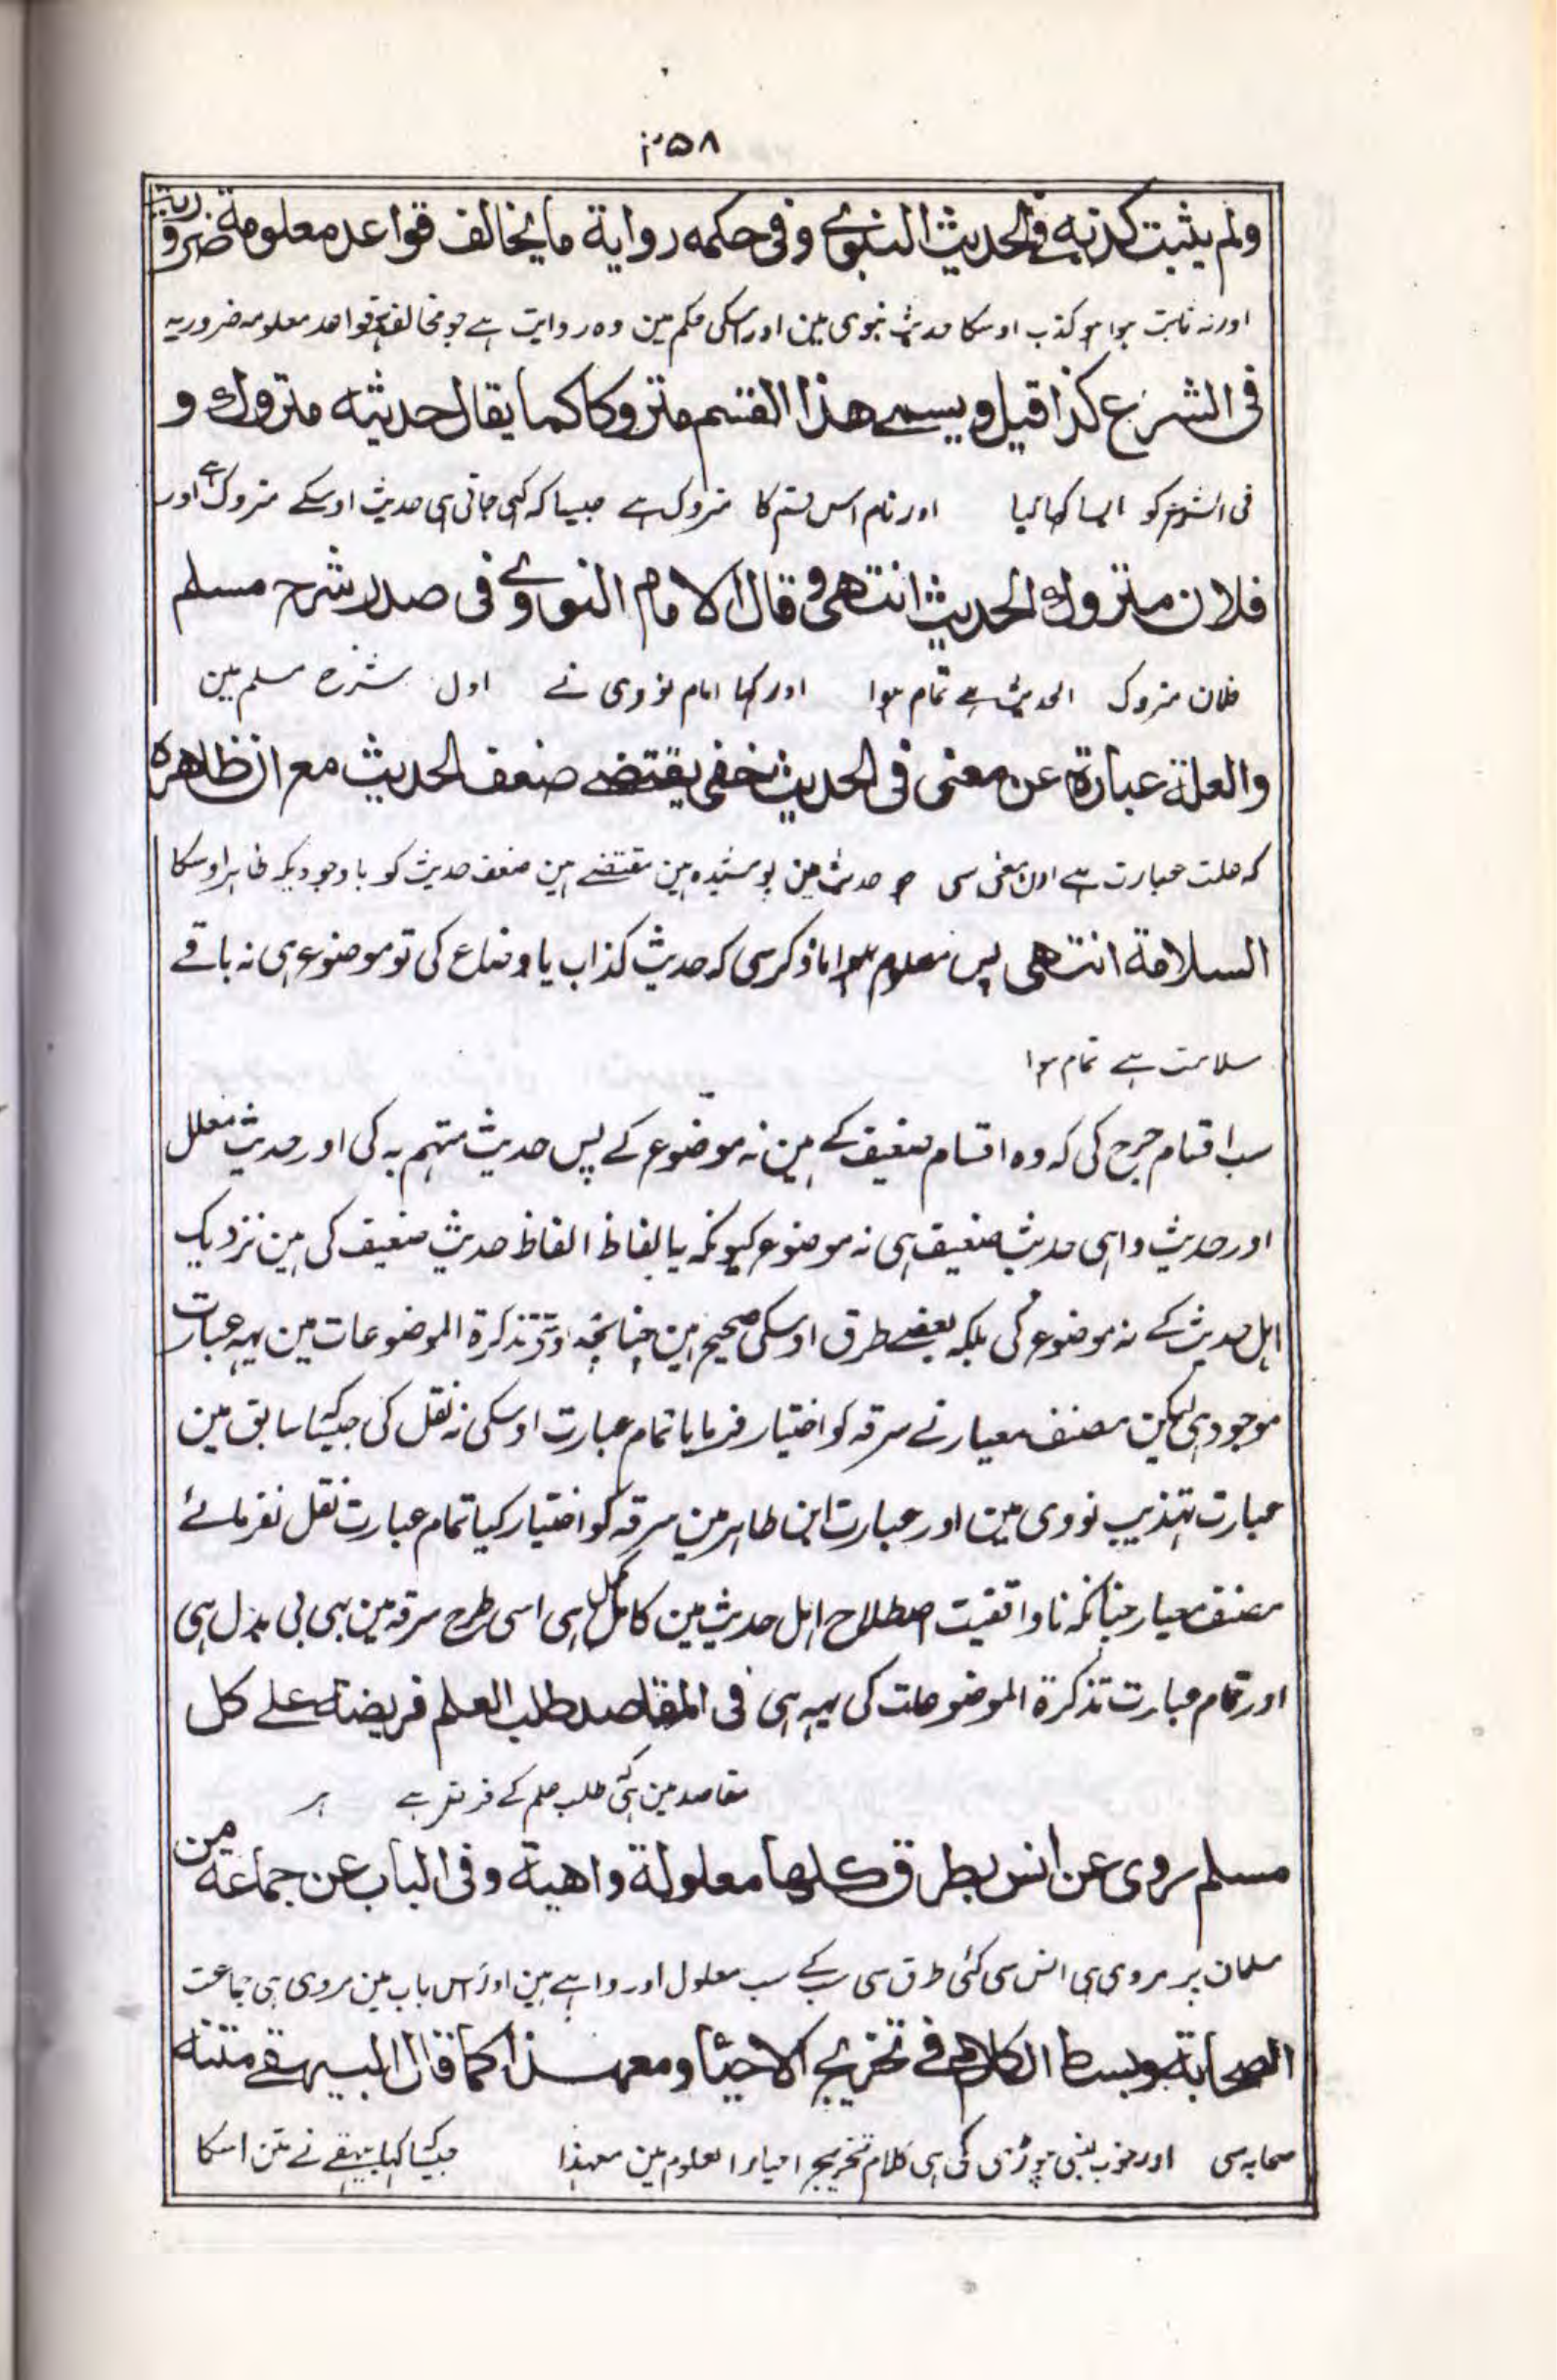 ۲۵۸
ولم يثبت كذبه في الحديث النبوي وفي حكمه رواية ما يخالف قواعد معلومة ضرورية
اور نہ ثابت ہوا ہو کذب اوسکا حدیث نبوی مین اور اسکی حکم مین وہ روایت ہے جو مخالف ہو قواعد معلومہ ضروریہ
فى الشرع كذا قيل ويسمى هذا القسم متروكا كما يقال حديثه متروك و
فی الشرع کو ایسا کہا گیا اور نام اس قسم کا متروک ہے جیسا کہ کہی جاتی ہی حدیث اوسکے متروک ہے اور
فلان متروك الحديث انتهى وقال الامام النووي فى صدر شرح مسلم
فلان متروک الحدیث ہے تمام ہوا اور کہا امام نووی نے اول شرح مسلم مین
والعلة عبارة عن معنى فى الحديث خفى يقتضى ضعف الحديث مع ان ظاهره
کہ علت عبارت ہے اون معنی سی جو حدیث مین پوشیدہ ہین مقتضے ہین ضعف حدیث کو باوجودیکہ ظاہر اوسکا
السلامة انتهى پس معلوم ہوا ماذکر سی کہ حدیث کذاب یا وضاع کی تو موضوع ہی نہ باقے
سلامت ہے تمام ہوا
سب اقسام جرح کی کہ وہ اقسام ضعیف کے ہین نہ موضوع کے پس حدیث متہم بہ کی اور حدیث معلل
اور حدیث واہی حدیث ضعیف ہی نہ موضوع کیونکہ یہ الفاظ الفاظ حدیث ضعیف کی ہین نزدیک
اہل حدیث کے نہ موضوع کی بلکہ بعضے طرق اوسکی صحیح ہین چنانچہ تذکرۃ الموضوعات مین یہہ عبارت
موجود ہی لیکن مصنف معیار نے سرقہ کو اختیار فرمایا تمام عبارت اوسکی نہ نقل کی جیسا سابق مین
عبارت تہذیب نووی مین اور عبارت ابن طاہر مین سرقہ کو اختیار کیا تمام عبارت نقل نفرمائے
مصنف معیار جنانکہ ناواقفیت اصطلاح اہل حدیث مین کامل ہی اسی طرح سرقہ مین بہی بی بدل ہی
اور تمام عبارت تذکرۃ الموضوعات کی یہہ ہی فى المقاصد طلب العلم فريضة على كل
مقاصد مین ہی طلب علم کے فرض ہے ہر
مسلم روى عن انس بطرق كلها معلولة واهية وفى الباب عن جماعة من
مسلمان پر مروی ہی انس سی کئی طرق سی سب کے سب معلول اور واہے ہین اور اس باب مین مروی ہی جماعت
الصحابة وبسط الكلام فى تخريج الاحياء ومع هذا كما قال البيهقى متنه
صحابہ سی اور خوب کی ہی کلام تخریج احیاء العلوم مین معہذا جیسا کہا بیہقے نے متن اسکا